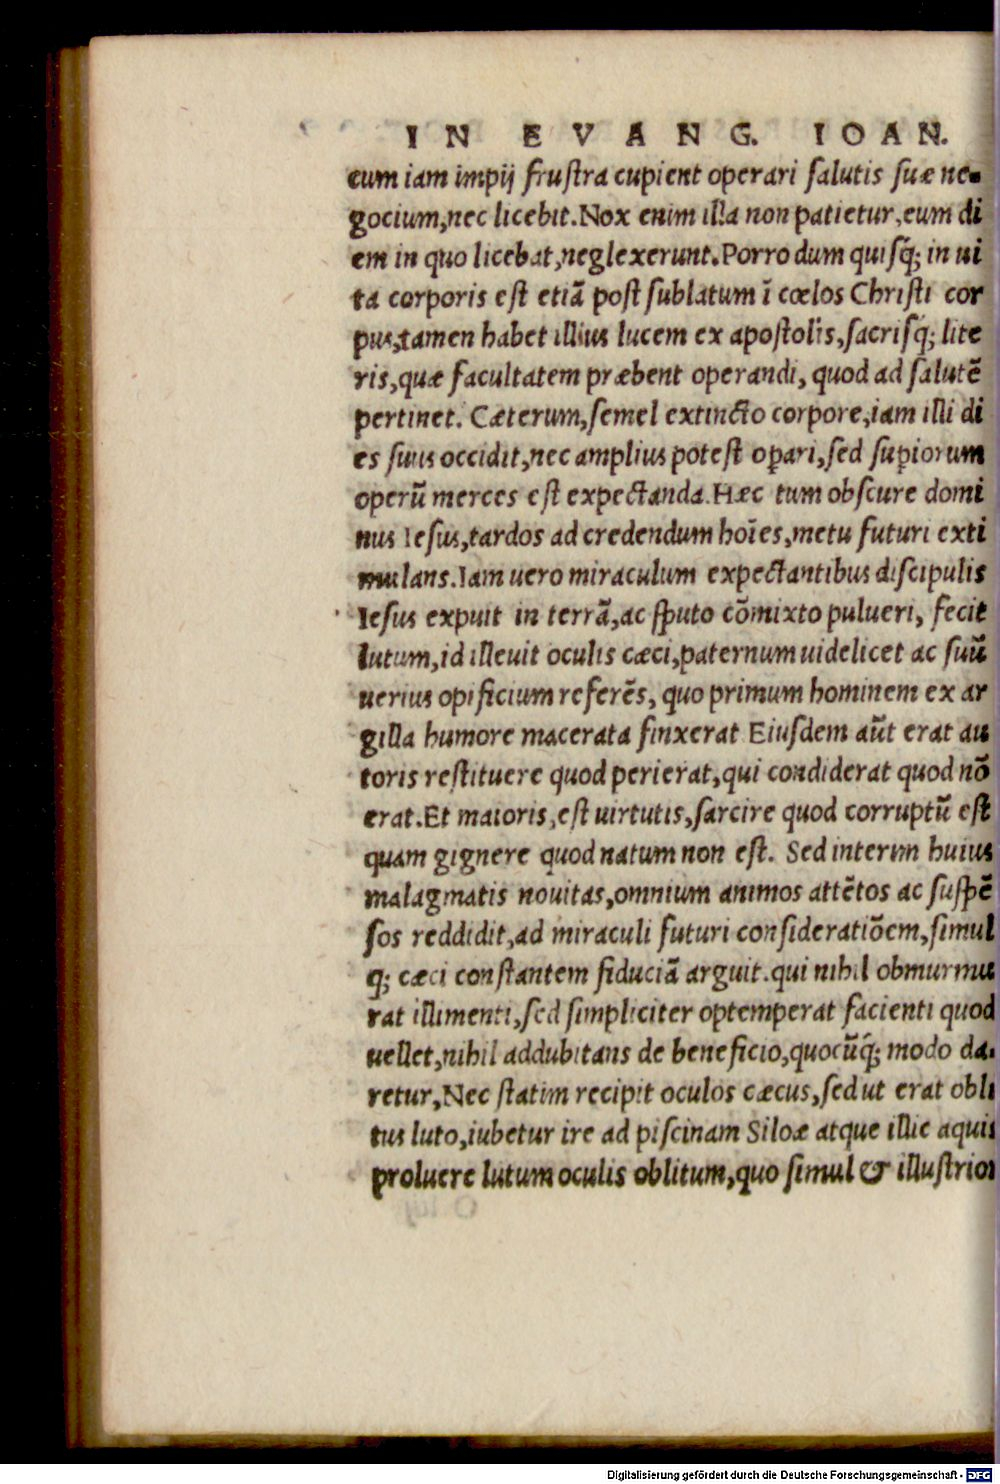 IN EVANG. IOAN.
cum iam impij frustra cupient operari salutis suæ ne-
gocium, nec licebit. Nox enim illa non patietur, eum di
em in quo licebat, neglexerunt. Porro dum quisq; in ui
ta corporis est etiã post sublatum ĩ cœlos Christi cor
pus, tamen habet illius lucem ex apostolis, sacrisq́; lite
ris, quæ facultatem præbent operandi, quod ad salutẽ
pertinet. Cæterum, semel extincto corpore, iam illi di
es suus occidit, nec amplius potest oꝑari, sed suꝑiorum
operũ merces est expectanda. Hæc tum obscure domi
nus Iesus, tardos ad credendum hoĩes, metu futuri exti
mulans. Iam uero miraculum expectantibus discipulis
Iesus expuit in terrã, ac sputo cõmixto pulueri, fecit
lutum, id illeuit oculis cæci, paternum uidelicet ac suũ
uerius opificium referẽs, quo primum hominem ex ar
gilla humore macerata finxerat Eiusdem aũt erat au
toris restituere quod perierat, qui condiderat quod nõ
erat. Et maioris, est uirtutis, sarcire quod corruptũ est
quam gignere quod natum non est. Sed interim huius
malagmatis nouitas, omnium animos attẽtos ac suspẽ
sos reddidit, ad miraculi futuri consideratiõem, simul
q́; cæci constantem fiduciã arguit. qui nihil obmurmu
rat illimenti, sed simpliciter optemperat facienti quod
uellet, nihil addubitans de beneficio, quocũq́; modo da-
retur, Nec statim recipit oculos cæcus, sed ut erat obli
tus luto, iubetur ire ad piscinam Siloæ atque illic aquis
proluere lutum oculis oblitum, quo simul & illustrior
Digitalisierung gefördert durch die Deutsche Forschungsgemeinschaft - DFG